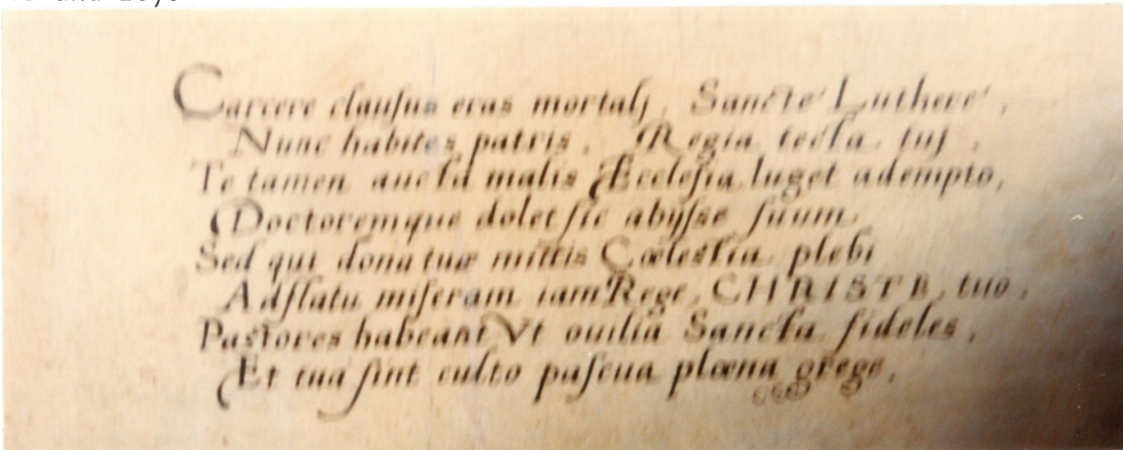 Carcere clausus eras mortalj, Sancte Luthere,
Nunc habites patris, Regia tecta suj,
Te tamen aucta malis Æcclesia luget adempto,
Doctoremque dolet sic abysse suum
Sed qui dona tuæ mittis Cœlestia plebi
Adflatu miseram iam Rege, CHRISTE, tuo,
Pastores habeant Vt ouilia Sancta fideles,
Et tua sint culto pascua plæna grege,